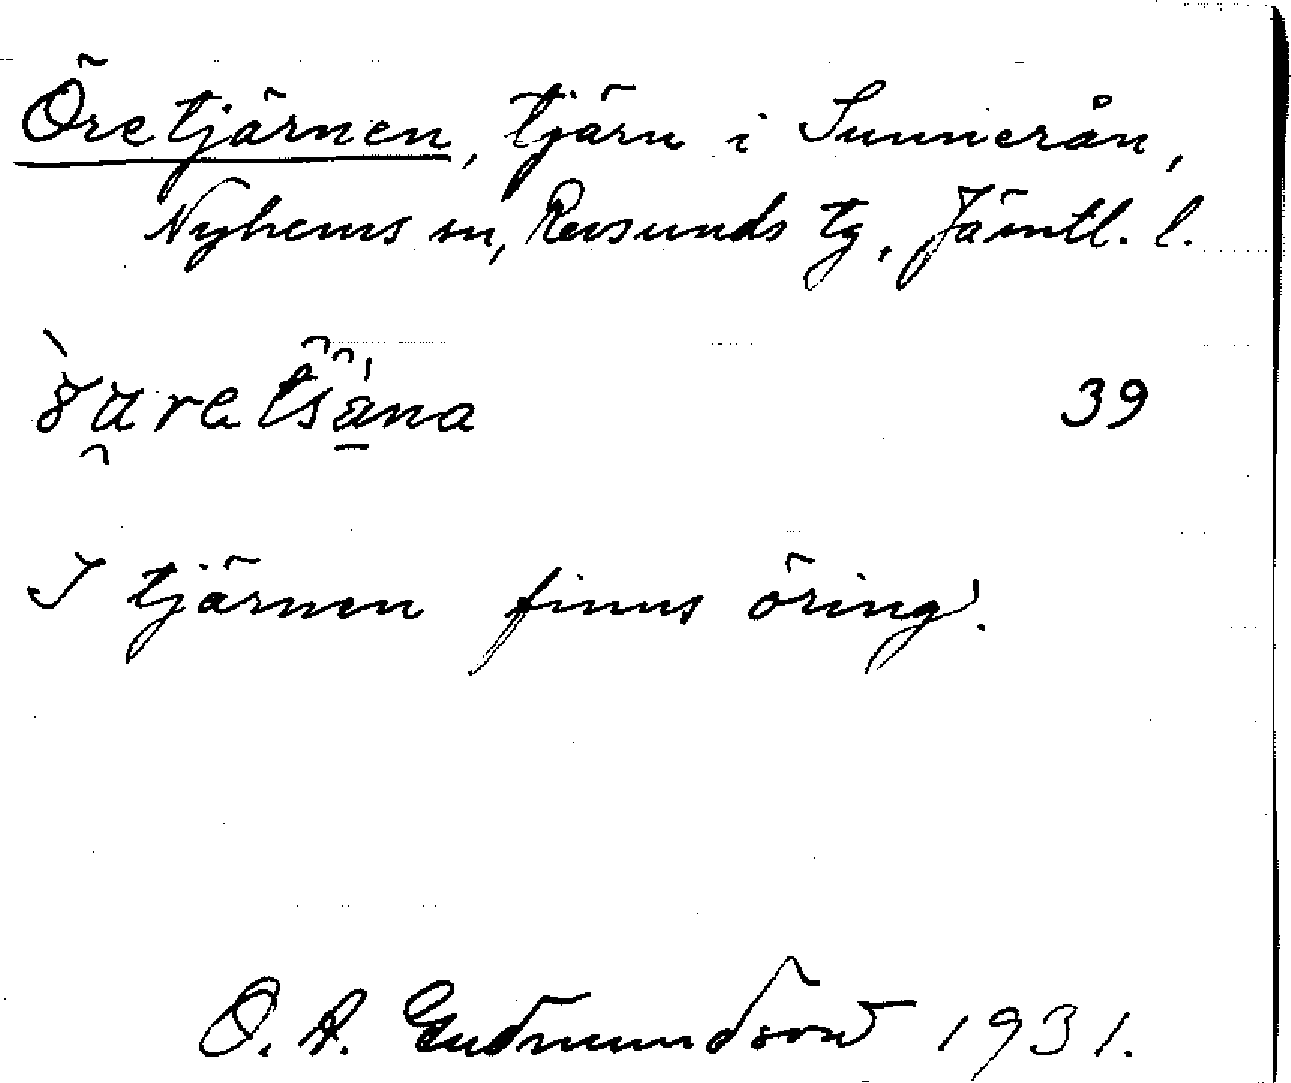 Öretjärnen, tjärn i Sunnerån,
Nyhems sn, Revsunds tg, Jämtl. l.
39
I tjärnen finns öring.
O. A. Gudmundsson 1931.